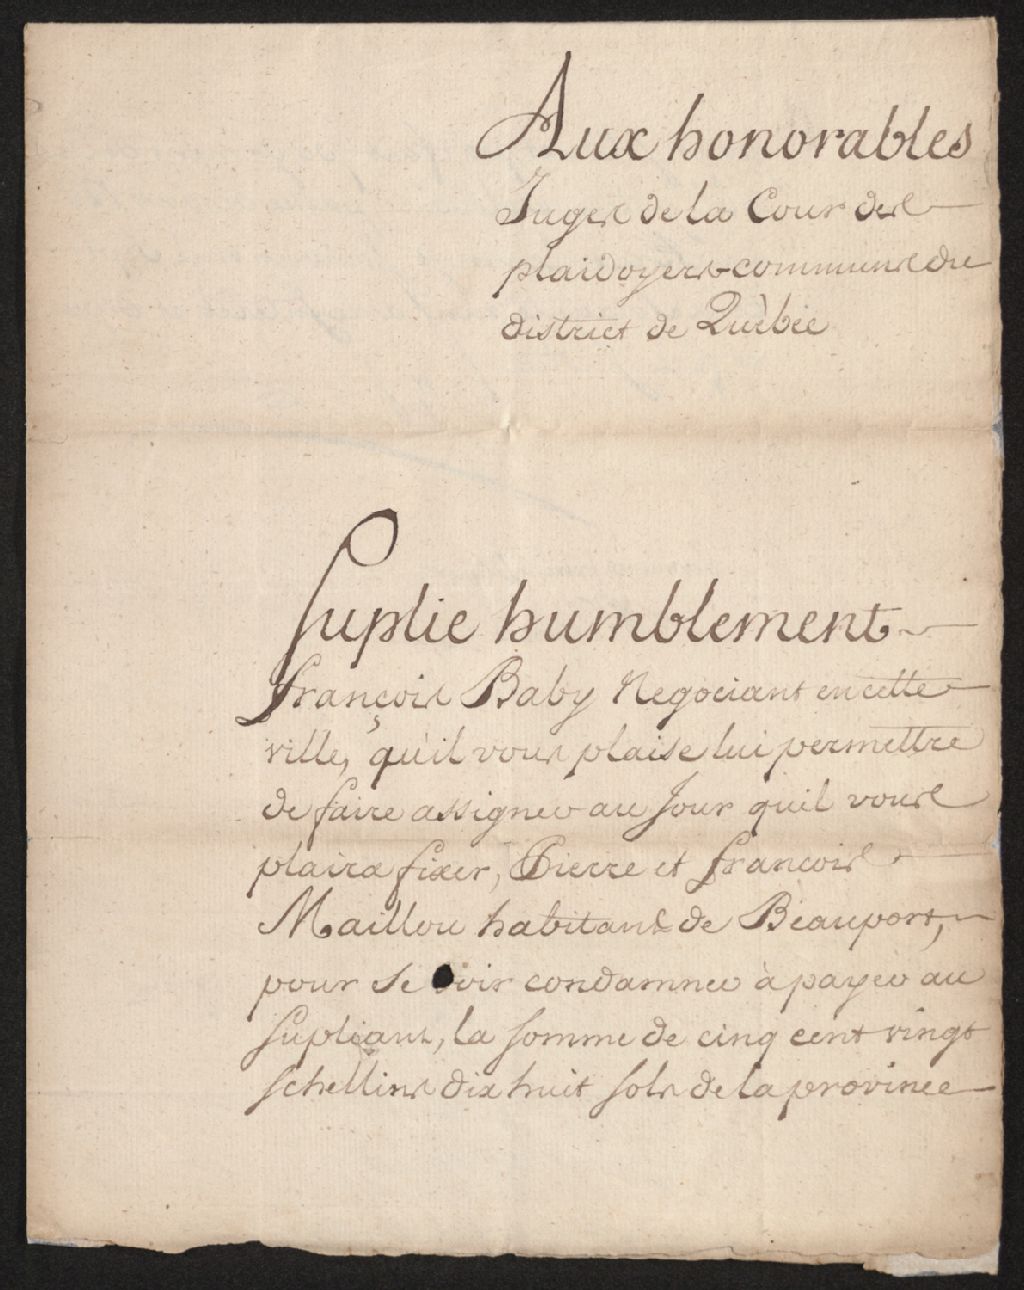 Aux honorables
Juges de la Cour des
plaidoyers communs du
district de Quèbéc
Suplie humblement
françois Baby Negociant en cette
ville, qu'il vous plaise lui permettre
de faire assigner au Jour quil vous
plaira fixer, Pierre et françois
Maillou habitans de Beauport,
pour se voir condamner à payer au
Supliant, la somme de cinq cent vingt
schellins dix huit sols de la province